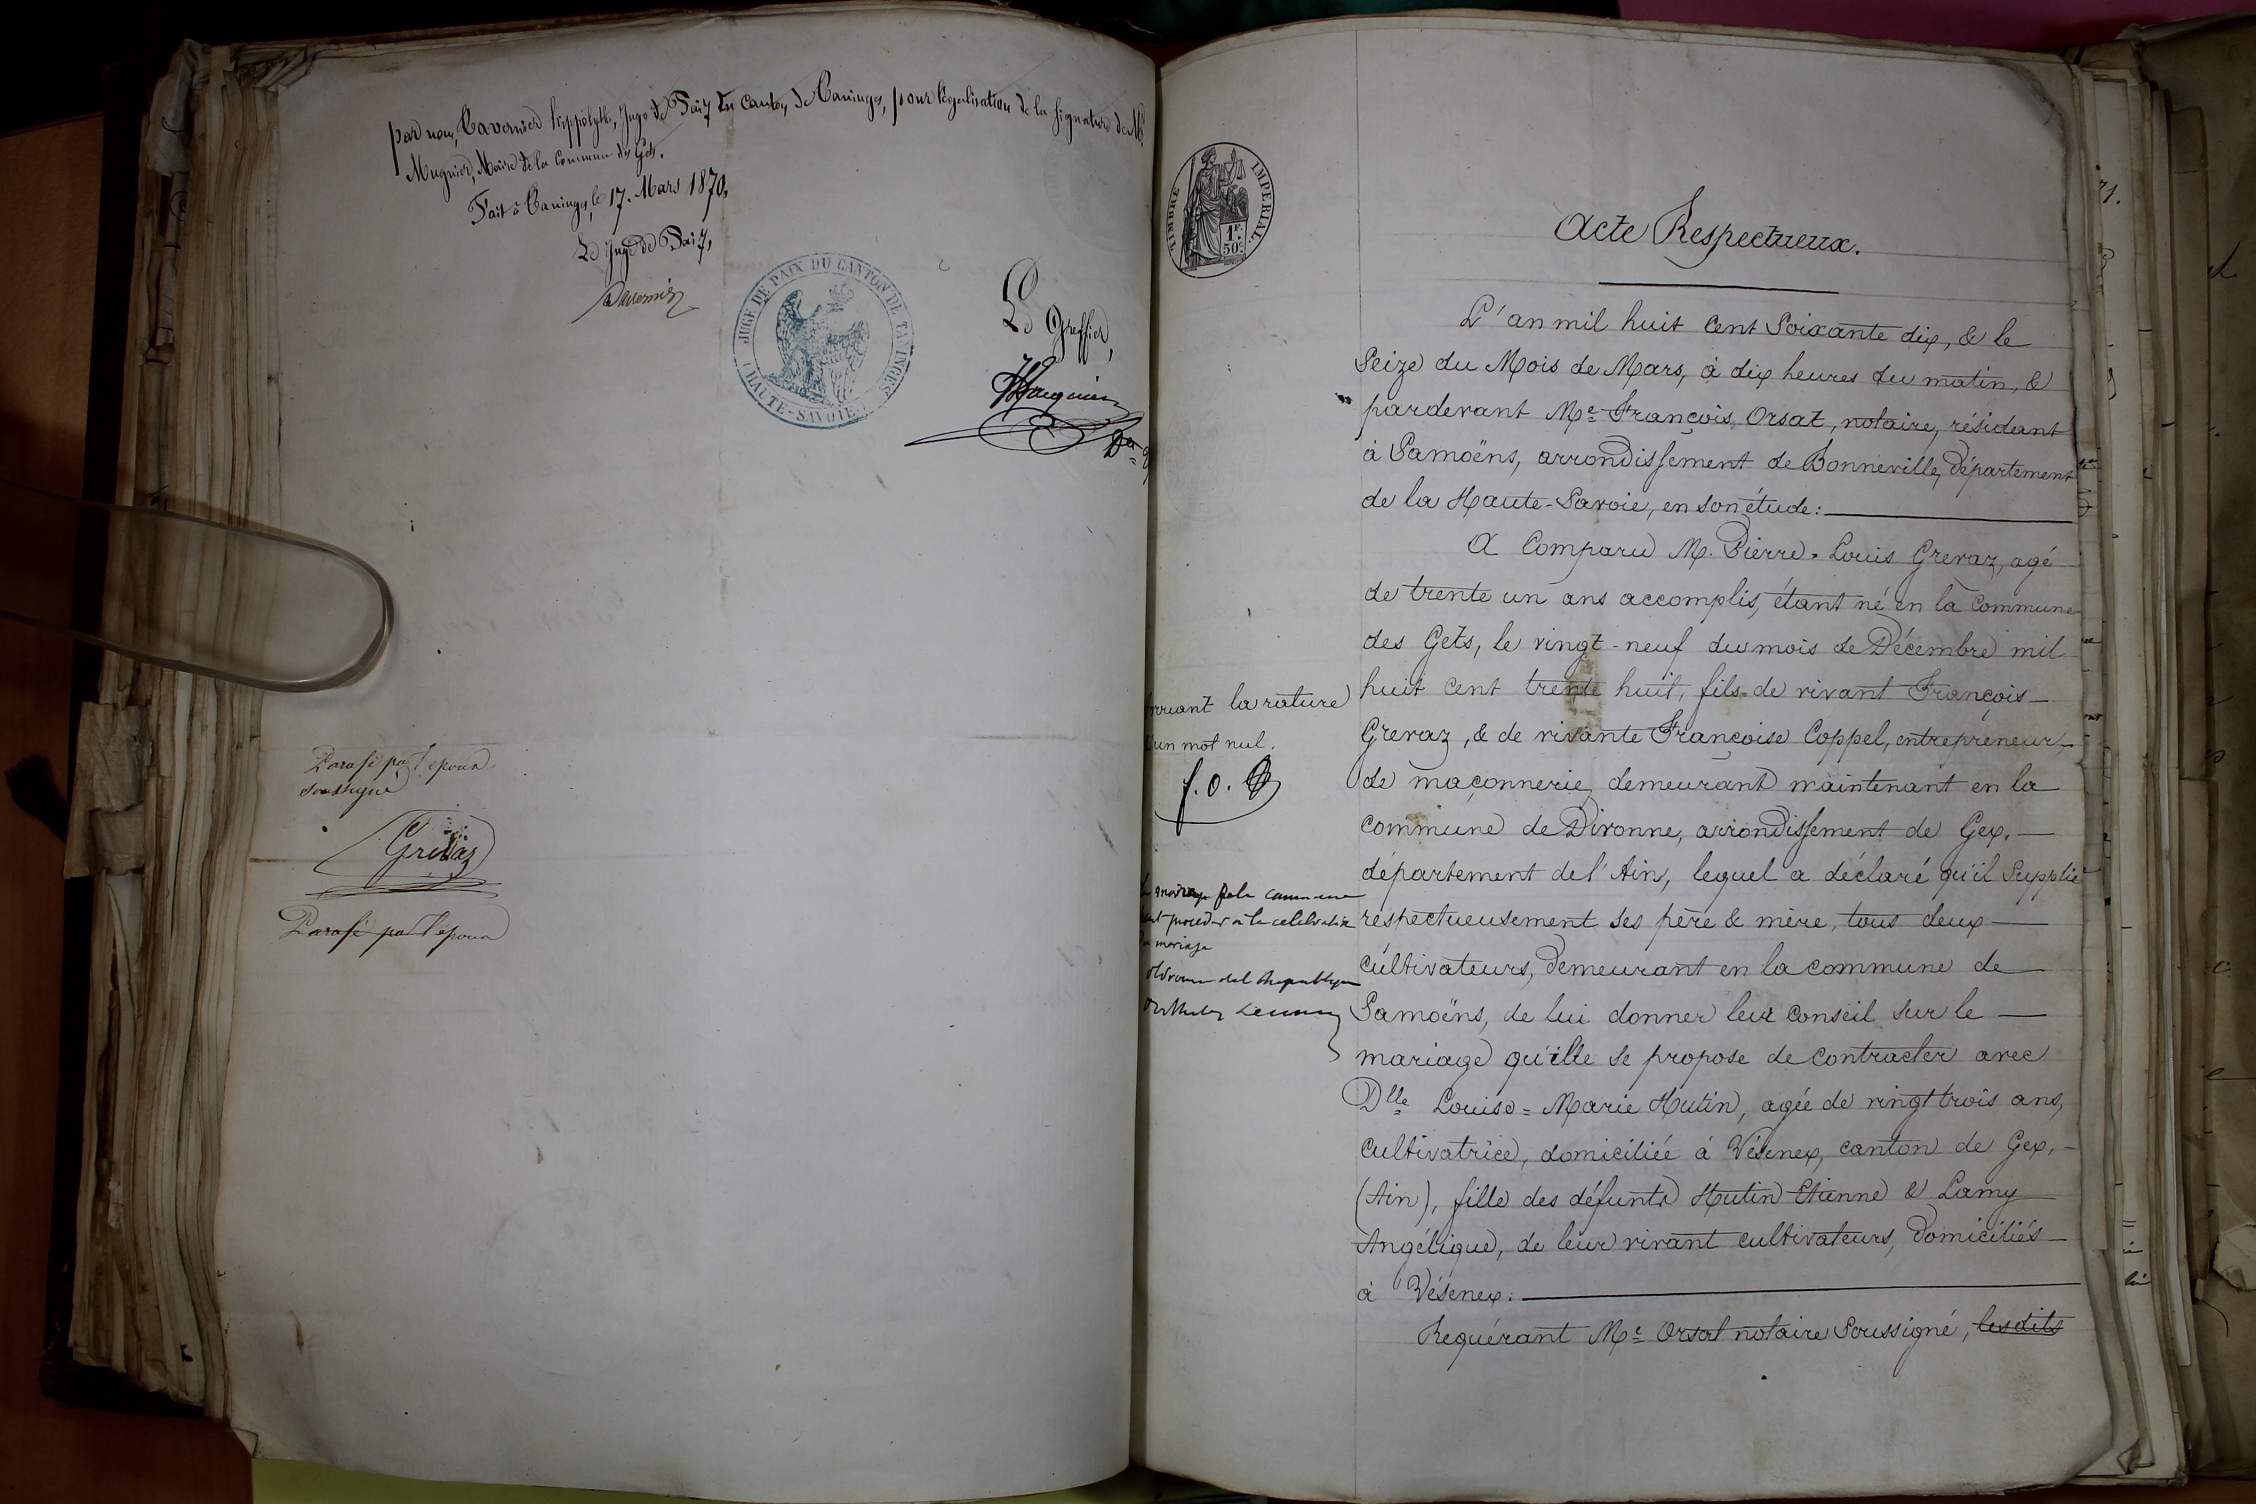 par nous, Tavernier hippolythe, Juge de Paix du Canton de Taninges, pour légalisation de la signature de Mr
Mugnier, Maire de la Commune des Gets.
Fait à Taninges, le 17. Mars 1870.
Le Juge de Paix,
Tavernier
JUGE DE PAIX DU CANTON DE TANINGES
(HAUTE-SAVOIE)
Le Greffier,
Parafé par l'epoux
soussigné
Grevaz
Parafé par l'epoux
TIMBRE IMPERIAL.
1F.
50C.
Acte Respectueux.
L'an mil huit cent soixante dix, & le
seize du Mois de Mars, à dix heures du matin, &
pardevant Me François Orsat, notaire, résidant
à Samoëns, arrondissement de Bonneville, département
de la Haute-Savoie, en son étude:
A Comparu M. Pierre-Louis Grevaz, agé
de trente un ans accomplis, étant né en la commune
des Gets, le vingt-neuf du mois de Décembre mil
huit cent trente huit, fils de vivant François
Grevaz, & de vivante Françoise Coppel, entrepreneur
de maçonnerie, demeurant maintenant en la
commune de Divonne, arrondissement de Gex,
département de l'Ain, lequel a déclaré qu'il supplie
respectueusement ses père & mère, tous deux
cultivateurs, demeurant en la commune de
Samoëns, de lui donner leur conseil sur le
mariage qu'ille se propose de contracter avec
Dlle Louise=Marie Hutin, agée de vingt trois ans,
cultivatrice, domiciliée à Vésenex, canton de Gex,
(Ain), fille des défunts Hutin Etienne & Lamy
Angélique, de leur vivant cultivateurs, domiciliés
à Vésenex.
Requérant Me Orsat notaire soussigné, lesdits
la rature
un mot nul.
f. O.
commune
procéder à la celebration
mariage